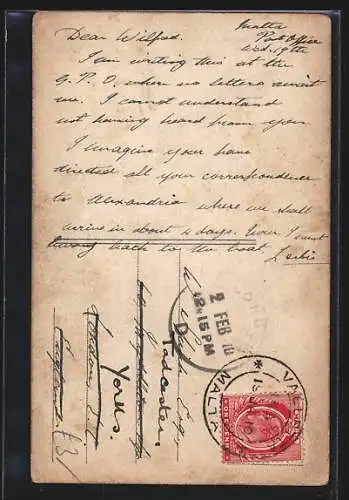 Malta
Post Office
Wed. 19th
Dear Wilfred.
I am writing this at the
G.P.O. where no letters await
me. I cannot understand
not having heard from you.
I imagine you have
directed all your correspondence
to Alexandria where we shall
arrive in about 4 days. Now I must
hurry back to the boat.
Leslie
Esq
Tadcaster
Yorks.
London
England
£3/
12 15 PM
2 FEB 10
VALLETTA
MALTA
ONE PENNY